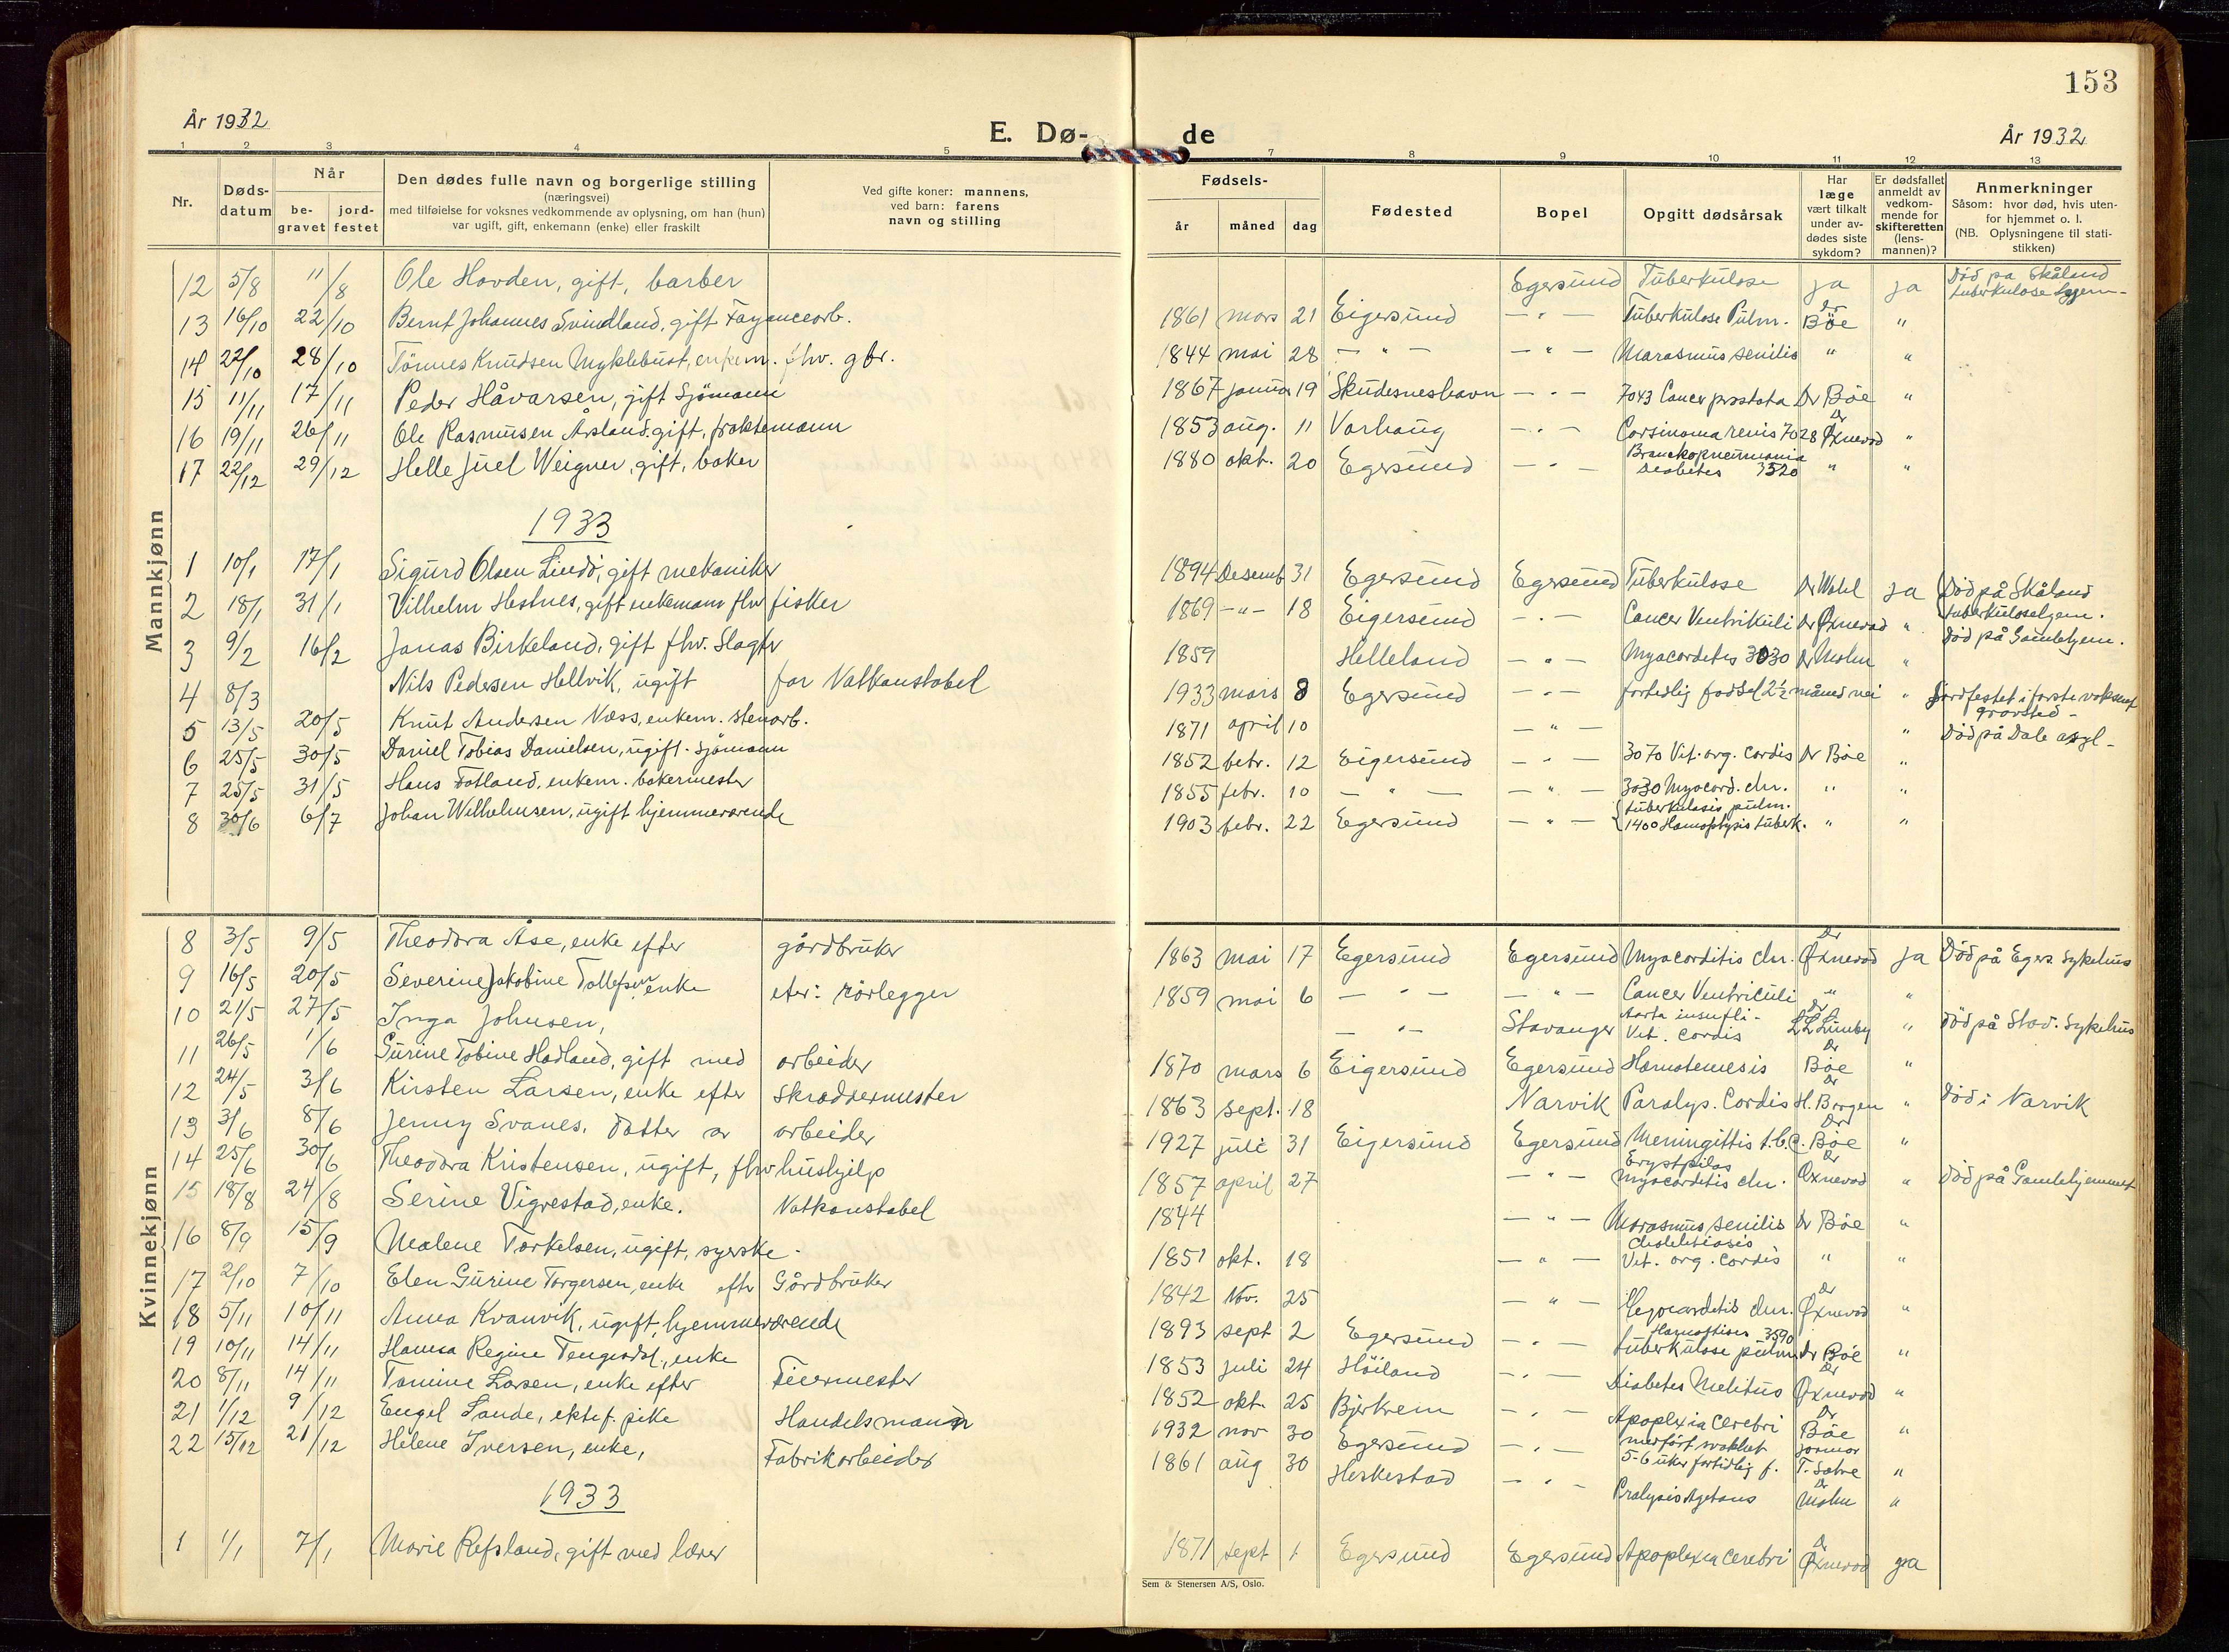 153
År 1932
E. Dø-
de
År 1932
1 2 3 4 5 7 8 9 10 11 12 13
Nr.
Døds-
datum
Når
be-
gravet
jord-
festet
Den dødes fulle navn og borgerlige stilling
(næringsvei)
med tilføielse for voksnes vedkommende av oplysning, om han (hun)
var ugift, gift, enkemann (enke) eller fraskilt
Ved gifte koner: mannens,
ved barn: farens
navn og stilling
Fødsels-
år måned dag
Fødested
Bopel
Opgitt dødsårsak
Har
læge
vært tilkalt
under av-
dødes siste
sykdom?
Er dødsfallet
anmeldt av
vedkom-
mende for
skifteretten
(lens-
mannen)?
Anmerkninger
Såsom: hvor død, hvis uten-
for hjemmet o. l.
(NB. Oplysningene til stati-
stikken)
Mannkjønn
12 5/8 11/8 Ole Hovden, gift, barber Egersund Tuberkulose ja ja Død på Skåland
tuberkulose
13 16/10 22/10 Bernt Johannes Svindland, gift Fayancearb. 1861 mars 21 Eigersund — " — Tuberkulose Pulm. Dr Bøe "
14 22/10 28/10 Tønnes Knudsen Myklebust, enkem. fhv. gbr. 1844 mai 28 — " — — " — Marasmus senilis " "
15 11/11 17/11 Peder Håvarsen, gift Sjømann 1867 januar 19 Skudesneshavn — " — 7043 Cancer prostata Dr Bøe "
16 19/11 26/11 Ole Rasmusen Årsland, gift, fraktemann 1853 aug. 11 Varhaug — " — Carsinoma renis 7028 Dr Øxnevad "
17 22/12 29/12 Helle Juel Weigner, gift, baker 1880 okt. 20 Egersund — " — Bronckopneumonia
Diabetes 3520 " "
1933
1 10/1 17/1 Sigurd Olsen Lindø, gift mekaniker 1894 Desemb 31 Egersund Egersund Tuberkulose Dr Wahl ja Død på Skåland
tuberkulosehjem.
2 18/1 31/1 Vilhelm Hestnes, gift enkemann fhv fisker 1869 — " — 18 Eigersund — " — Cancer Ventrikuli Dr Øxnevad " Død på Gamlehjem.
3 9/2 16/2 Jonas Birkeland, gift fhv. Slagter 1859 Helleland — " — Myocarditis 3030 Dr Molm "
4 8/3 Nils Pedersen Hellvik, ugift far Vaktkonstabel 1933 mars 8 Egersund — " — fortidlig fødsel 2½ måned nei " Jordfestet i første voksent
gravsted -
5 13/5 20/5 Knut Andersen Næss, enkem. stenarb. 1871 april 10 — " — " Død på Dale asyl -
6 25/5 30/5 Daniel Tobias Danielsen, ugift. Sjømann 1852 febr. 12 Eigersund — " — 3070 Vit. org. Cordis Dr Bøe "
7 25/5 31/5 Hans Fotland, enkem. bakermester 1855 febr. 10 — " — — " — 3030 Myocord. chr. " "
8 30/6 6/7 Johan Wilhelmsen, ugift hjemmeværende 1903 febr. 22 Egersund — " — tuberkulosis pulm.
1400 Hæmoptysis tuberk. " "
Kvinnekjønn
8 3/5 9/5 Theodora Åse, enke efter gårdbruker 1863 mai 17 Egersund Egersund Myocarditis chr. Dr Øxnevad ja Død på Egers. Sykehus
9 16/5 20/5 Severine Jakobine Tollefsen enke efter: rörlegger 1859 mai 6 — " — — " — Cancer Ventriculi " "
10 21/5 27/5 Inga Johnsen, — " — Stavanger Aorta insuffi-
Vit. Cordis Dr Lumby " Død på Stav. Sykehus
11 26/5 1/6 Gurine Tobine Hadland, gift med arbeider 1870 mars 6 Eigersund Egersund Hæmatemesis Dr Bøe "
12 24/5 3/6 Kirsten Larsen, enke efter Skreddermester 1863 sept. 18 Narvik Paralys. Cordis Dr H. Borgen " Død i Narvik
13 3/6 8/6 Jenny Svanes, datter av arbeider 1927 juli 31 Eigersund Egersund Meningittis t.b.c. Dr Bøe "
14 25/6 30/6 Theodora Kristensen, ugift, fhv hushjelp 1857 april 27 — " — Erysipelas
Myocarditis chr. Dr Øxnevad " Død på Gamlehjemmet
15 18/8 24/8 Serine Vigrestad, enke. Vaktkonstabel 1844 — " — Marasmus senilis Dr Bøe "
16 8/9 15/9 Malene Torkelsen, ugift, syerske - 1851 okt. 18 — " — Cholelitiasis
Vit. org. Cordis " "
17 2/10 7/10 Elen Gurine Torgersen, enke efter Gårdbruker 1842 Nov. 25 — " — Myocarditis chr. Dr Øxnevad "
18 5/11 10/11 Anna Kvanvik, ugift, hjemmeværende 1893 sept 2 Egersund — " — 3590
tuberkulose pulm Dr Bøe "
19 10/11 14/11 Hanna Regine Tengesdal, enke 1853 juli 24 Höiland — " — Diabetes Melitus Dr Øxnevad "
20 8/11 14/11 Tomine Larsen, enke efter Feiermester 1852 okt. 25 Bjerkrem — " — Apoplexia Cerebri Dr Bøe "
21 1/12 9/12 Engel Lande, ektef. pike Handelsmann 1932 nov 30 Egersund — " — medført svakhet
5-6 uker fortidlig f. jormor
T. Sætre "
22 15/12 21/12 Helene Iversen, enke, Fabrikarbeider 1861 aug 30 Heskestad — " — Pralysis Agetans Dr Molm "
1933
1 1/1 7/1 Marie Refsland, gift med lærer 1871 sept 1 Egersund Egersund Apoplexia Cerebri Dr Øxnevad ja
Sem & Stenersen A/S, Oslo.